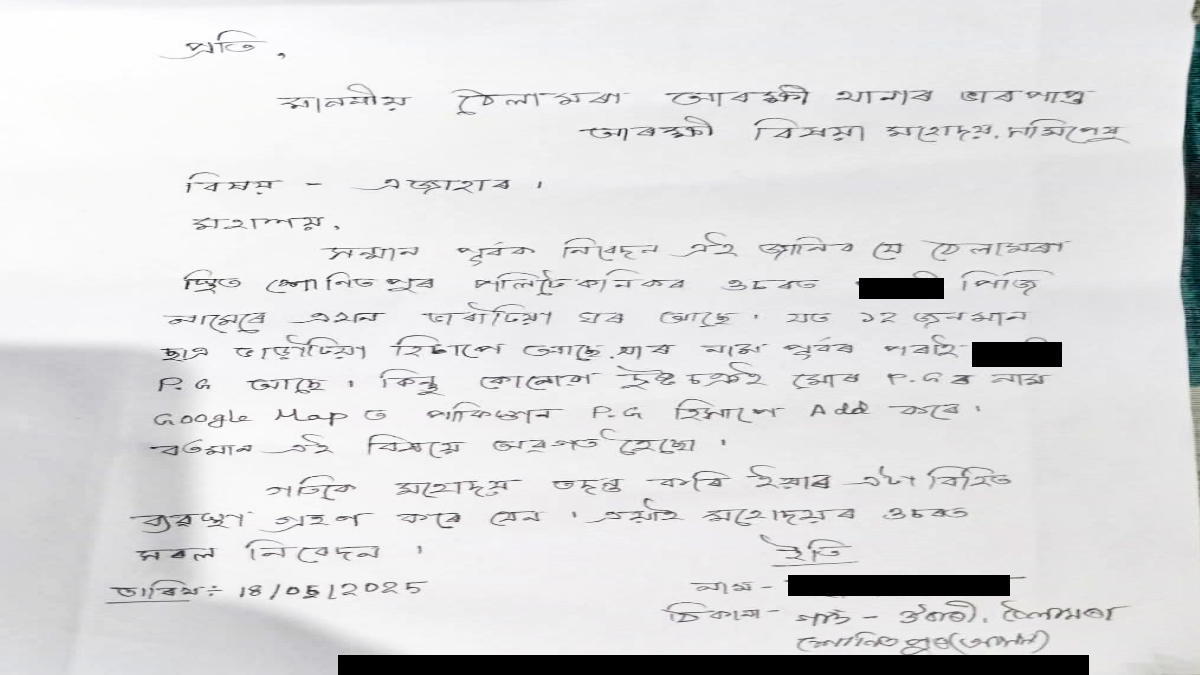 প্ৰতি,
মাননীয় ঠেলামৰা আৰক্ষী থানাৰ ভাৰপাপ্ত
আৰক্ষী বিষয়া মহোদয়, সমিপেষু
বিষয় - এজাহাৰ ।
মহাশয়,
সন্মান পূৰ্বক নিবেদন এই জানিব যে ঠেলামৰা
স্থিত শোণিতপুৰ পলিটেকনিকৰ ওচৰত পিজি
নামেৰে এখন ভাৰাটিয়া ঘৰ আছে । য'ত ১২ জনমান
ছাত্ৰ ভাড়াটিয়া হিচাপে আছে যাৰ নাম পূৰ্বৰ পৰাই
P.G আছে । কিন্তু কোনোবা দুষ্ট চক্ৰই মোৰ P.G ৰ নাম
Google Map ত পাকিস্তান P.G হিসাপে Add কৰে ।
বৰ্তমান এই বিষয়ে অৱগত হৈছো ।
গতিকে মহোদয় তদন্ত কৰি ইয়াৰ এটা বিহিত
ব্যৱস্থা গ্ৰহণ কৰে যেন । এয়াই মহোদয়ৰ ওচৰত
সৰল নিবেদন ।
ইতি
তাৰিখ : 18/05/2025
নাম -
ঠিকনা - গাওঁ - ঠেলামৰা
শোণিতপুৰ (আসাম)